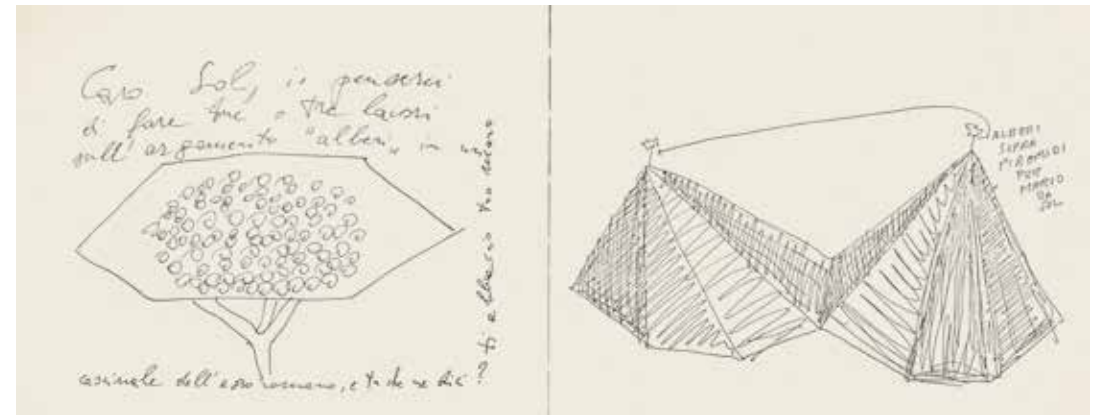 Caro Sol, io penserei
di fare due o tre lavori
sull'argomento "alberi" in un
casinale dell'agro romano, e tu che ne dici?
ti abbraccio tuo Mario
ALBERI
SOPRA
PIRAMIDI
PER
MARIO
DA
SOL